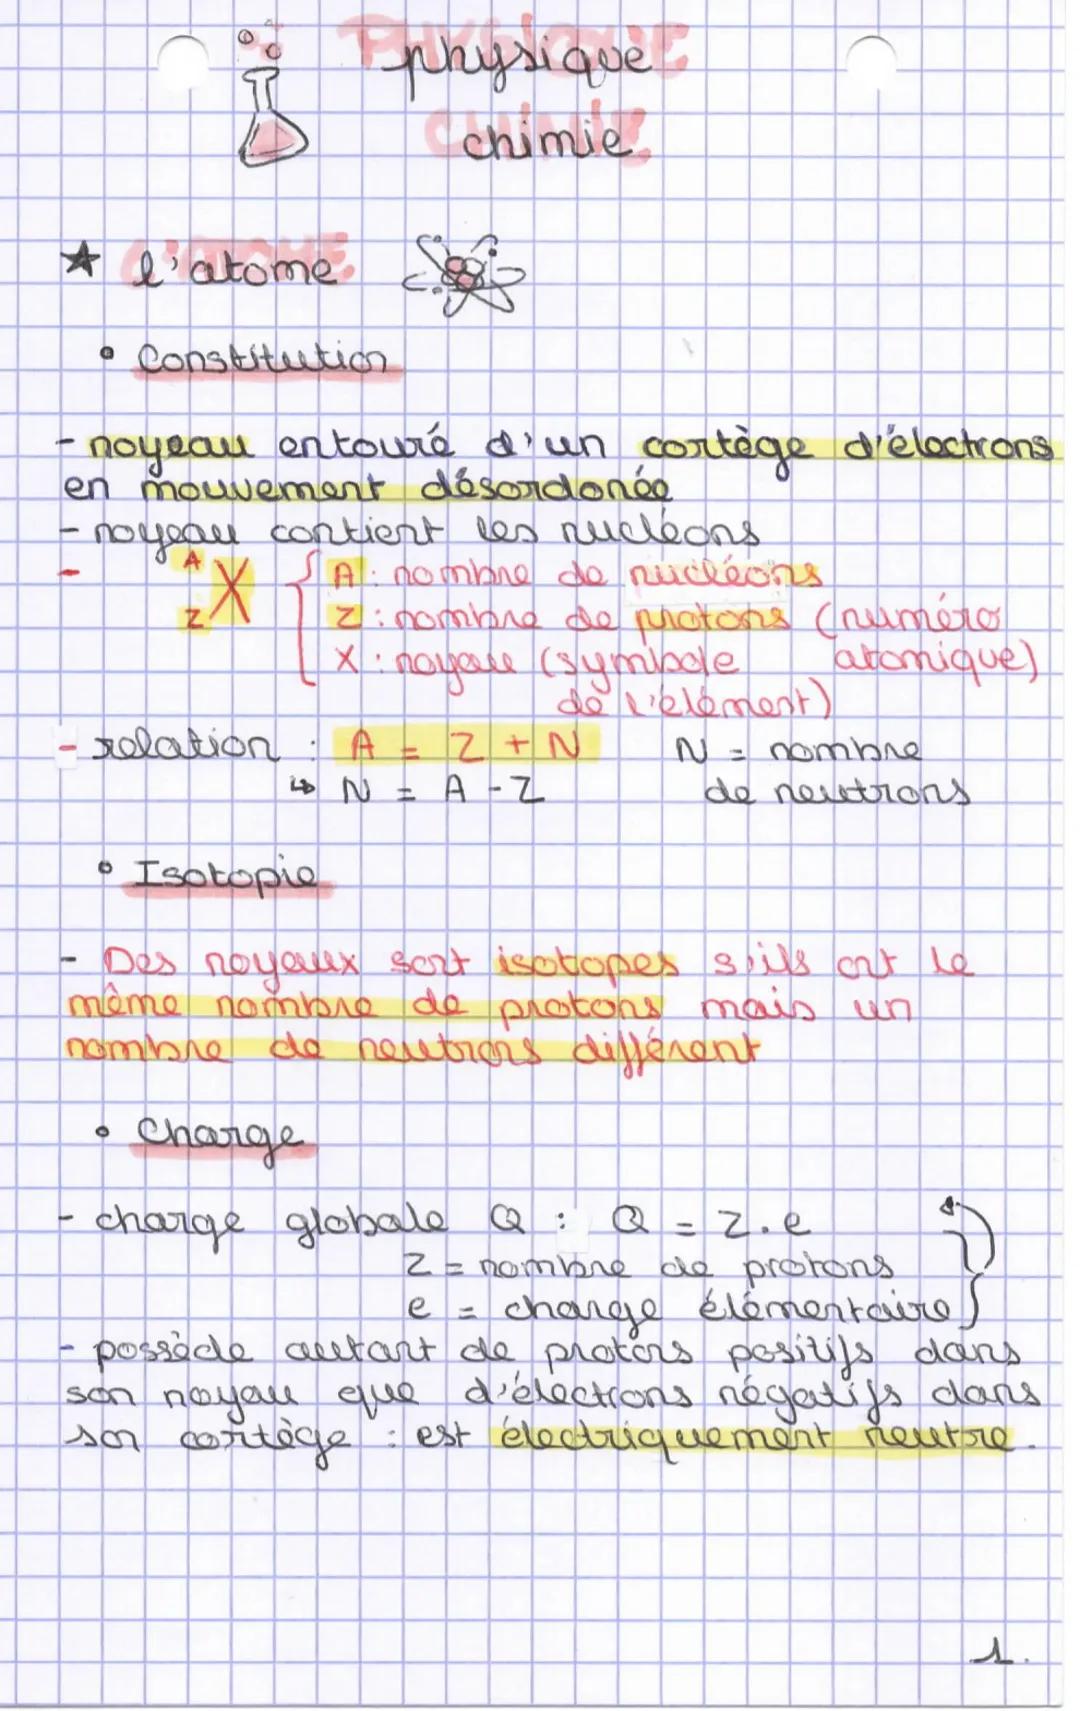 physique
chimie
★ l'atome
• Constitution
- noyeau entouré d'un cortège d'électrons
en mouvement désordonée
- noyeau contient les nucléons
- A Z X { A : nombre de nucléons
Z : nombre de protons (numéro
X : noyau (symbole atomique)
de l'élément)
- relation : A = Z + N N = nombre
↳ N = A - Z de neutrons
• Isotopie
- Des noyaux sont isotopes s'ils ont le
même nombre de protons mais un
nombre de neutrons différent
• Charge
- charge globale Q : Q = Z.e
Z = nombre de protons
e = charge élémentaire
- possède autant de protons positifs dans
son noyau que d'électrons négatifs dans
son cortège : est électriquement neutre.
1.